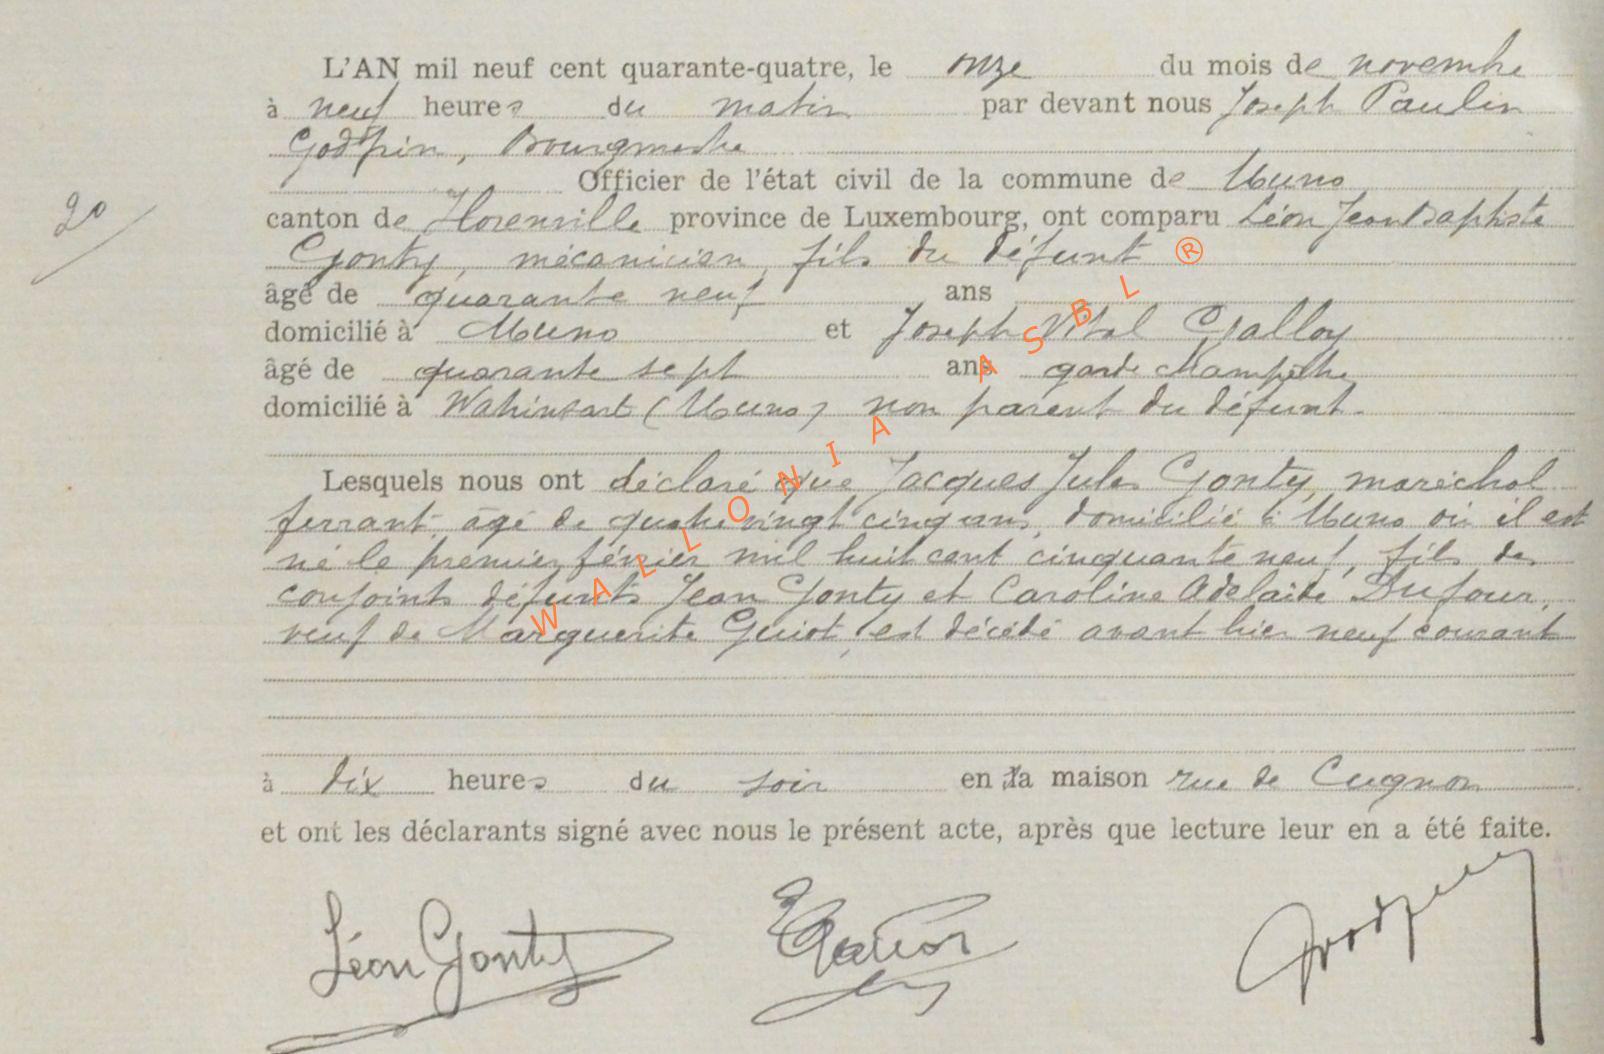 L'AN mil neuf cent quarante-quatre, le onze du mois de novembre
à neuf heures du matin par devant nous Joseph Paulin
Godfrin, Bourgmestre
Officier de l'état civil de la commune de Muno
20
canton de Florenville province de Luxembourg, ont comparu Léon Jean Baptiste
Gonty, mécanicien, fils du défunt ®
âgé de quarante neuf ans
domicilié à Muno et Joseph Vital Galloy
âgé de quarante sept ans garde champêtre
domicilié à (Muno) non parent du défunt.
Lesquels nous ont déclaré que Jacques Jules Gonty, maréchal
ferrant, âgé de quatre vingt cinq ans, domicilié à Muno où il est
né le premier février mil huit cent cinquante neuf, fils des
conjoints défunts Jean Gonty et Caroline Adelaïde Dufour,
veuf de Marguerite Guiot, est décédé avant hier neuf courant
WALLONIA ASBL
à dix heures du soir en sa maison rue de Cugnon
et ont les déclarants signé avec nous le présent acte, après que lecture leur en a été faite.
Léon Gonty